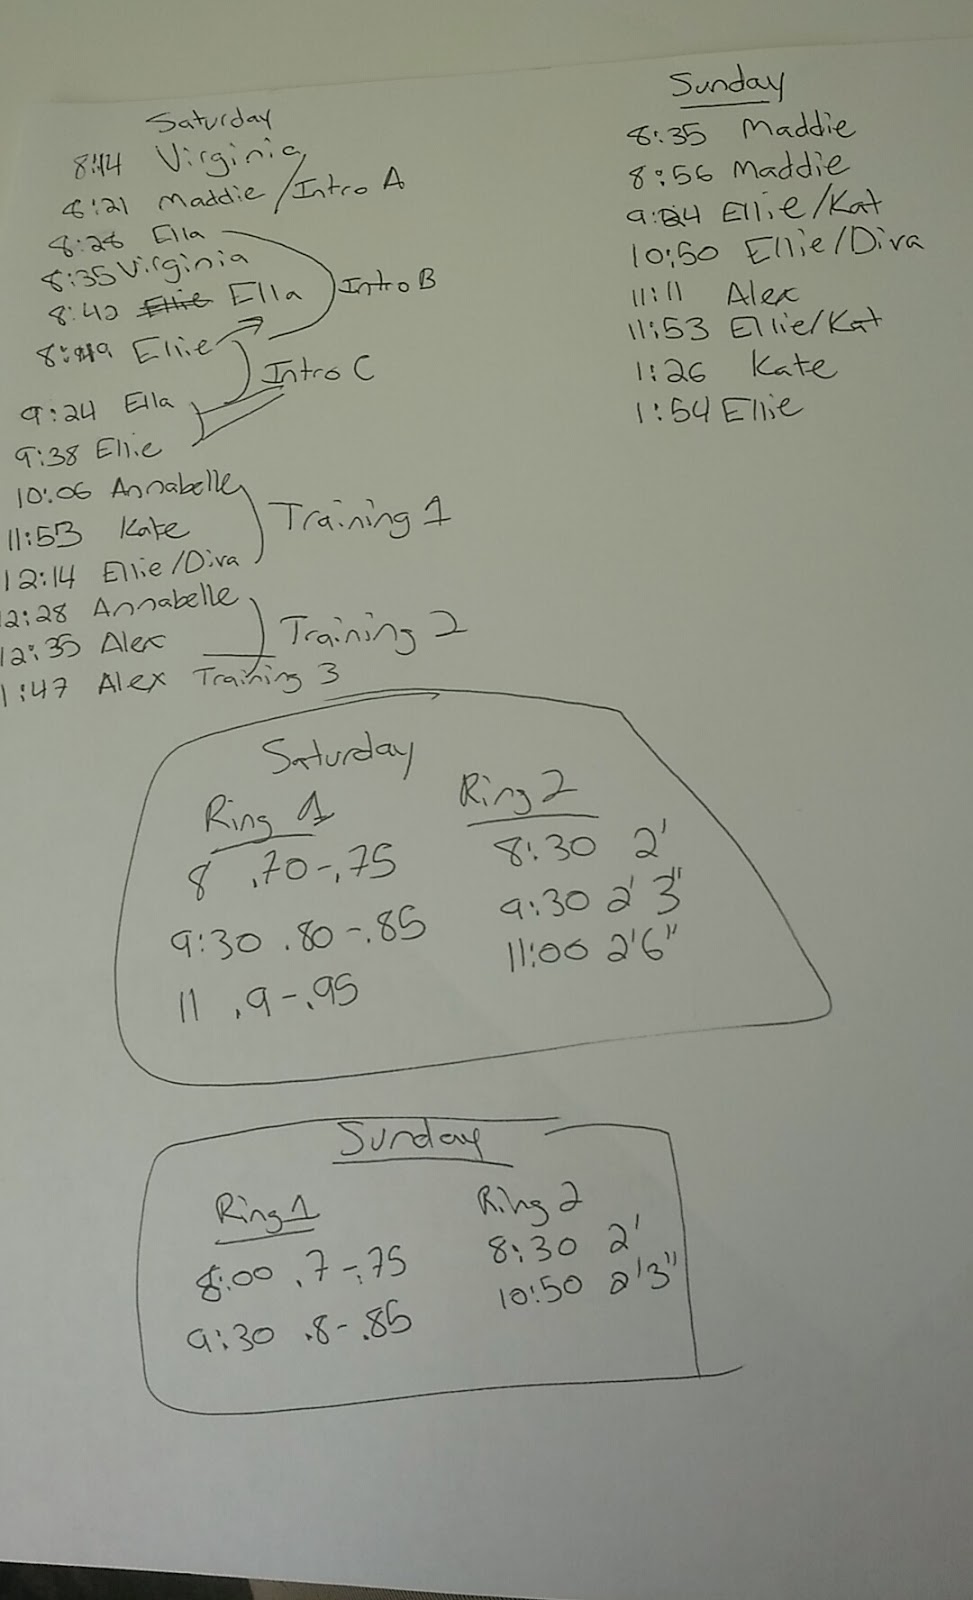 Saturday
8:14 Virginia
8:21 Maddie / Intro A
8:28 Ella
8:35 Virginia
8:42 Ellie Ella
Intro B
8:49 Ellie
Intro C
9:24 Ella
9:38 Ellie
10:06 Annabelle
11:53 Kate
Training 1
12:14 Ellie/Diva
12:28 Annabelle
12:35 Alex
Training 2
1:47 Alex Training 3
Sunday
8:35 Maddie
8:56 Maddie
9:24 Ellie/Kat
10:50 Ellie/Diva
11:11 Alex
11:53 Ellie/Kat
1:26 Kate
1:54 Ellie
Saturday
Ring 1
8 .70-.75
9:30 .80-.85
11 .9-.95
Ring 2
8:30 2'
9:30 2' 3"
11:00 2'6"
Sunday
Ring 1
8:00 .7-.75
9:30 .8-.85
Ring 2
8:30 2'
10:50 2'3"